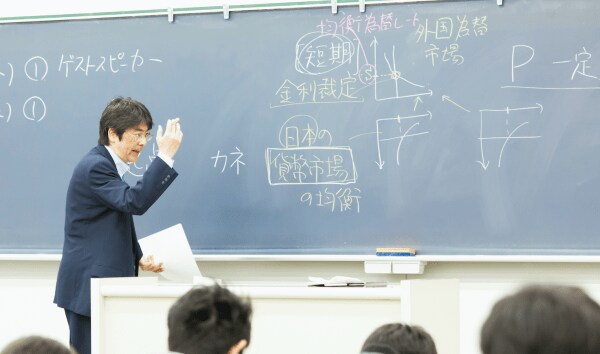 ① ゲストスピーカー
①
カネ
均衡為替レート
短期
金利裁定
日本の
貨幣市場
の均衡
外国為替
市場
P 一定